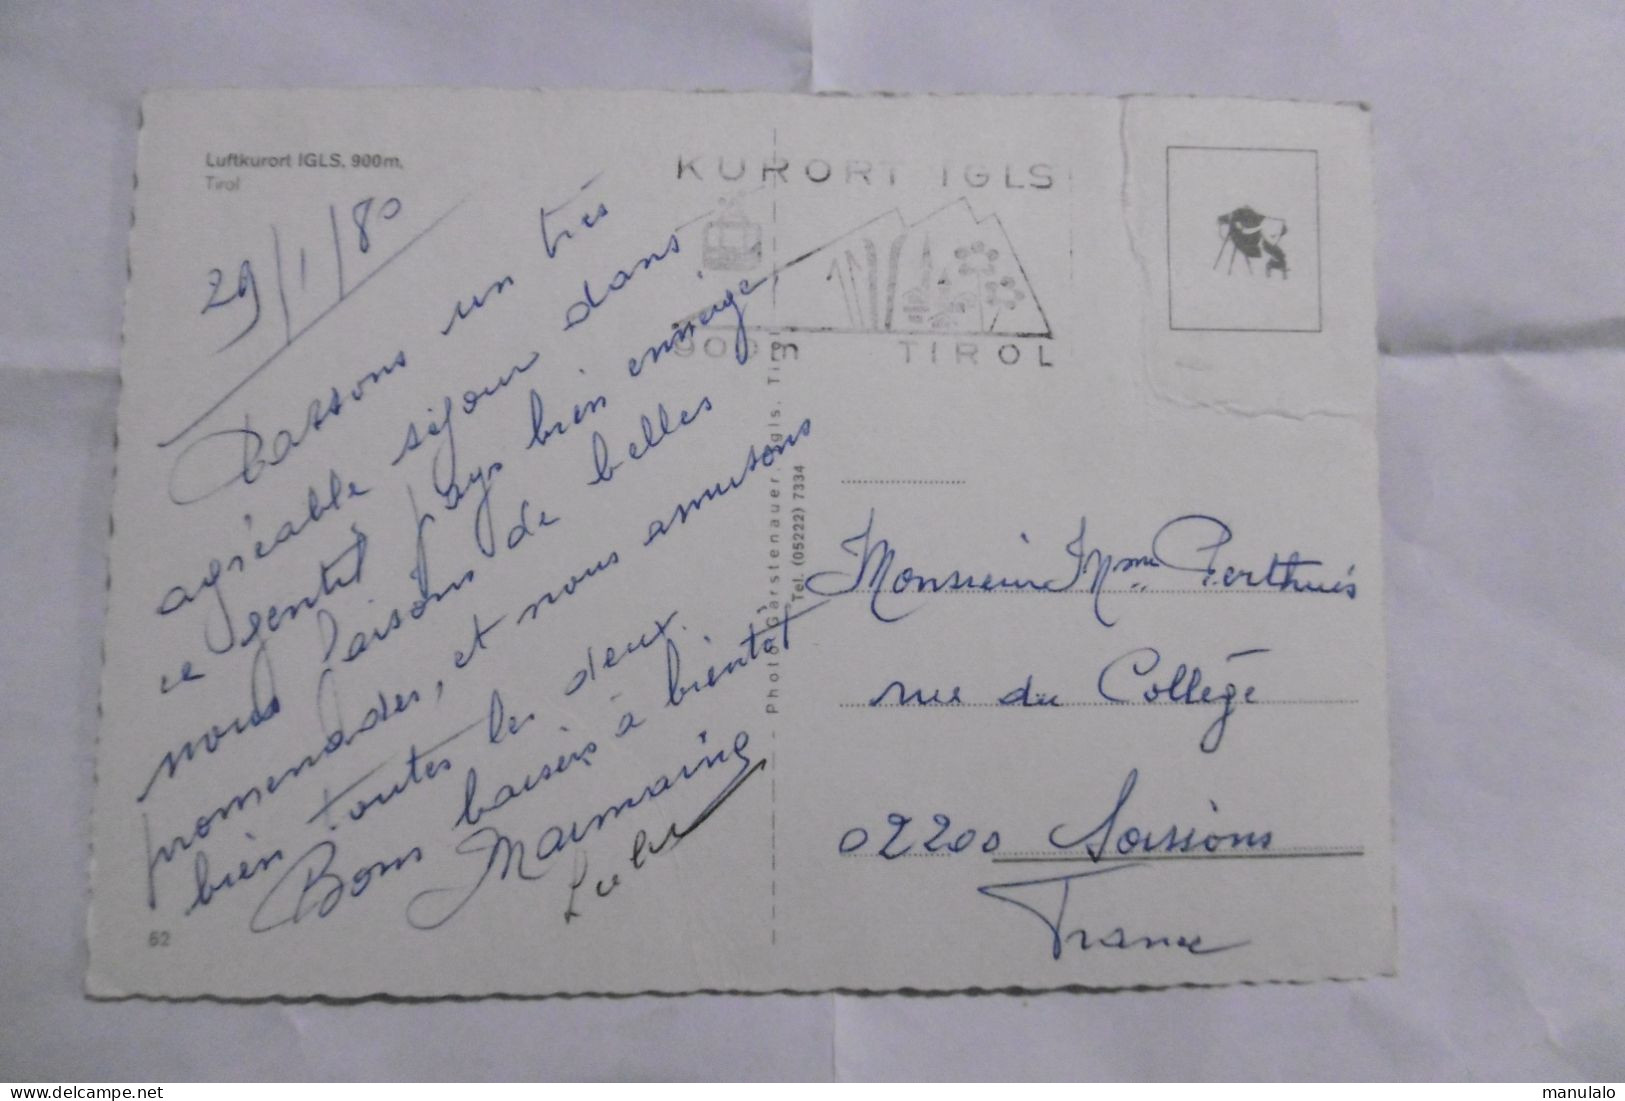 Luftkurort IGLS, 900m,
Tirol
29/1/80
Passons un très
agréable séjour dans
ce gentil pays bien enneigé,
nous faisons de belles
promenades, et nous amusons
bien toutes les deux.
Bons baisers à bientôt
Marraine
Lulu
62
KURORT IGLS
900m TIROL
Photo: Gerstenauer, Igls, Tirol
Tel. (05222) 7334
Monsieur Mme Perthués
rue du Collège
02200 Soissons
France
delcampe.net
manulalo